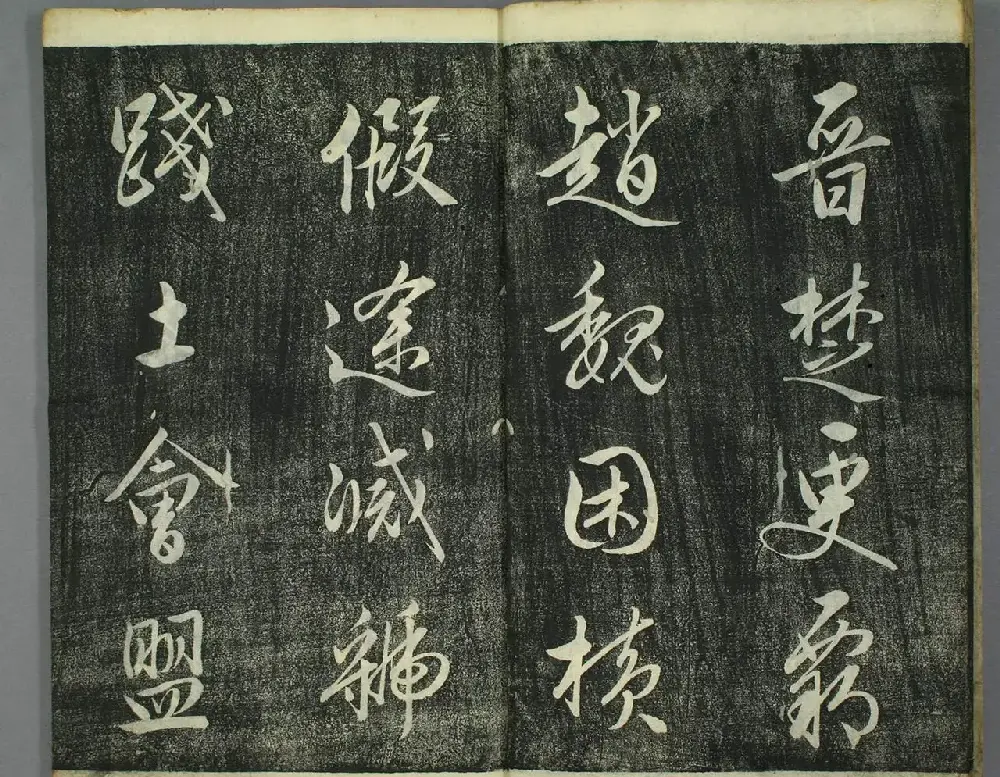 晋楚更覇
趙魏困横
假途滅虢
踐土會盟